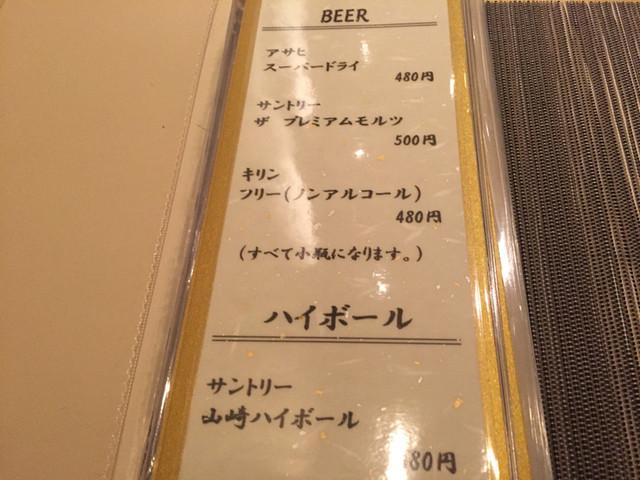 BEER
アサヒ
スーパードライ
480円
サントリー
ザ プレミアムモルツ
500円
キリン
フリー(ノンアルコール)
480円
(すべて小瓶になります。)
ハイボール
サントリー
山崎ハイボール
80円